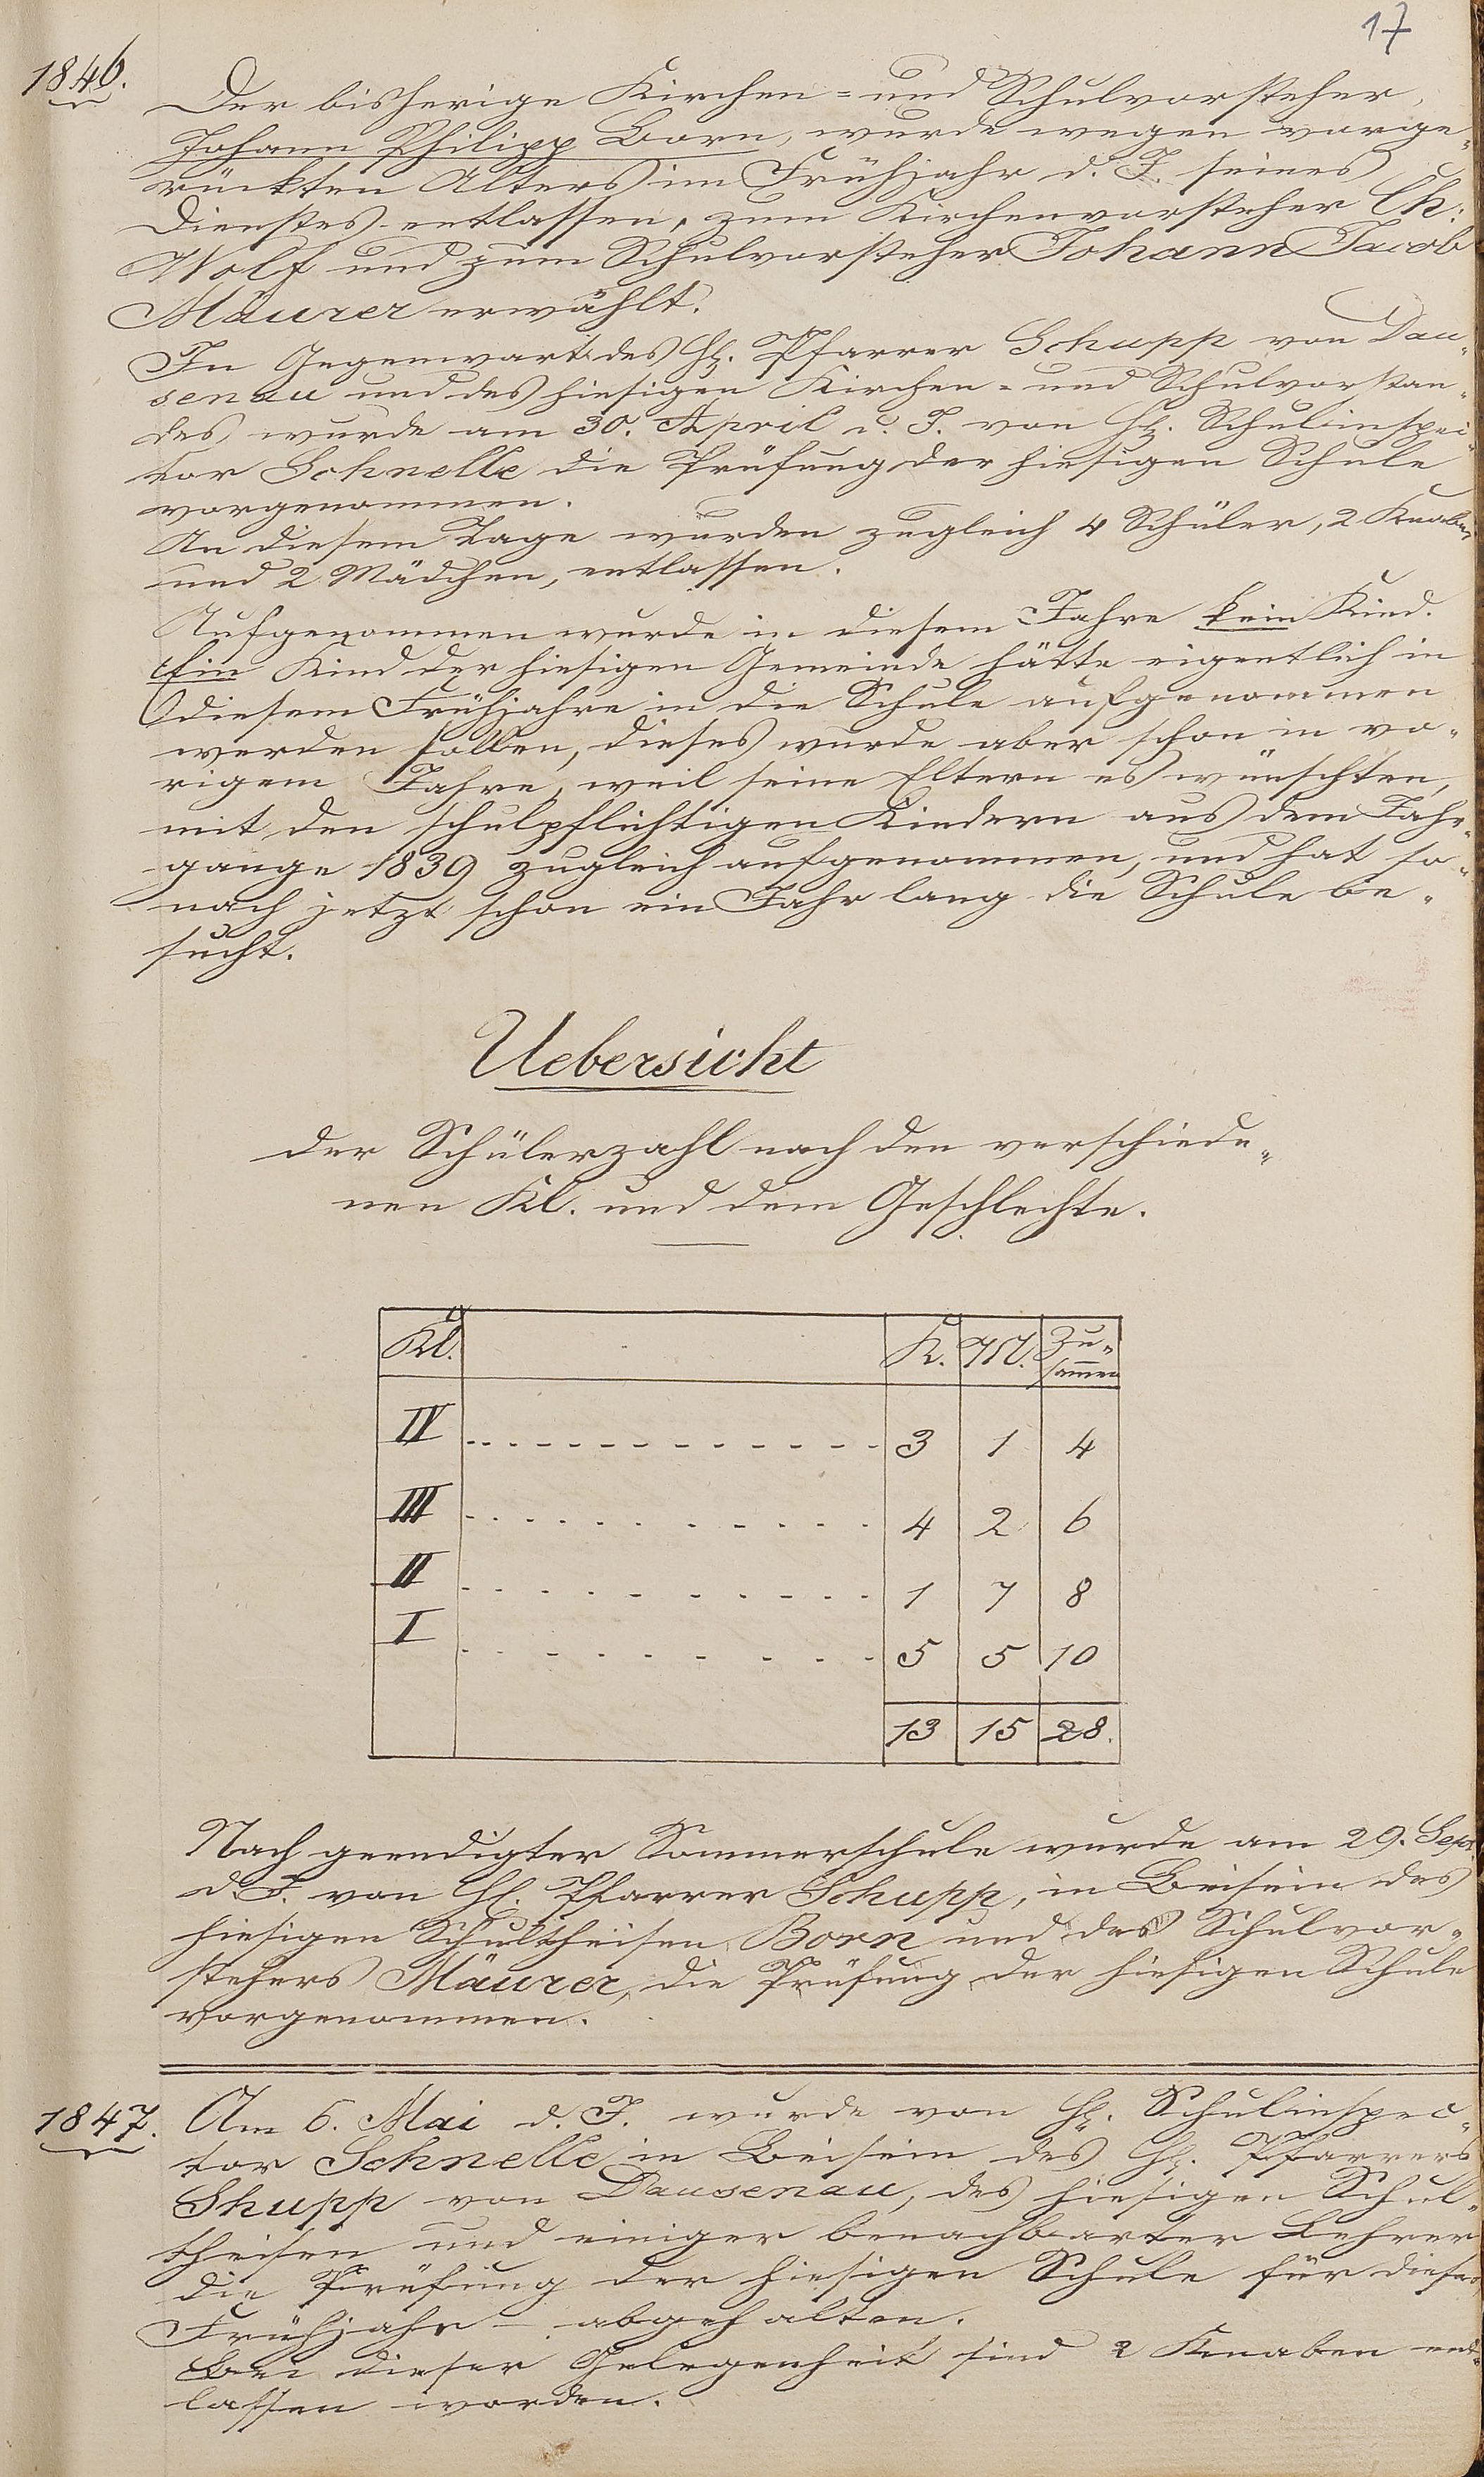 17
1846.
Der bisherige Kirchen- und Schulvorsteher,
Johann Philipp Born, wurde wegen vorge-
rückten Alters im Frühjahr d. J. seines
Dienstes entlassen, zum Kirchenvorsteher Ch:
Wolf und zum Schulvorsteher Johann Jacob
Mäurer erwählt.
In Gegenwart des H. Pfarrer Schupp von Dau-
senau und des hiesigen Kirchen- und Schulvorstan-
des wurde am 30. April d. J. von H. Schulinspec-
tor Schnelle die Prüfung der hiesigen Schule
vorgenommen.
An diesem Tage wurden zugleich 4 Schüler, 2 Knaben
und 2 Mädchen, entlassen.
Aufgenommen wurde in diesem Jahre kein Kind.
Ein Kind der hiesigen Gemeinde hätte eigentlich in
diesem Frühjahre in die Schule aufgenommen
werden sollen, dieses wurde aber schon in vo-
rigem Jahre, weil seine Eltern es wünschten,
mit den schulpflichtigen Kindern aus dem Jahr-
gange 1839 zugleich aufgenommen, und hat so-
nach jetzt schon ein Jahr lang die Schule be-
sucht.
Uebersicht
der Schülerzahl nach den verschiede-
nen Kl. und dem Geschlechte.
Kl. K. M. Zu-
sammen
IV 3 1 4
III 4 2 6
II 1 7 8
I 5 5 10
13 15 28.
Nach geendigter Sommerschule wurde am 29. Sept.
d. J. von H. Pfarrer Schupp, in Beisein des
hiesigen Schultheisen Born und des Schulvor-
stehers Mäurer, die Prüfung der hiesigen Schule
vorgenommen.
1847.
Am 6. Mai d. J. wurde von H. Schulinspec-
tor Schnelle in Beisein des H. Pfarrers
Shupp von Dausenau, des hiesigen Schul-
theisen und einiger benachbarter Lehrer
die Prüfung der hiesigen Schule für dieses
Frühjahr - abgehalten.
Bei dieser Gelegenheit sind 2 Knaben ent-
lassen worden.